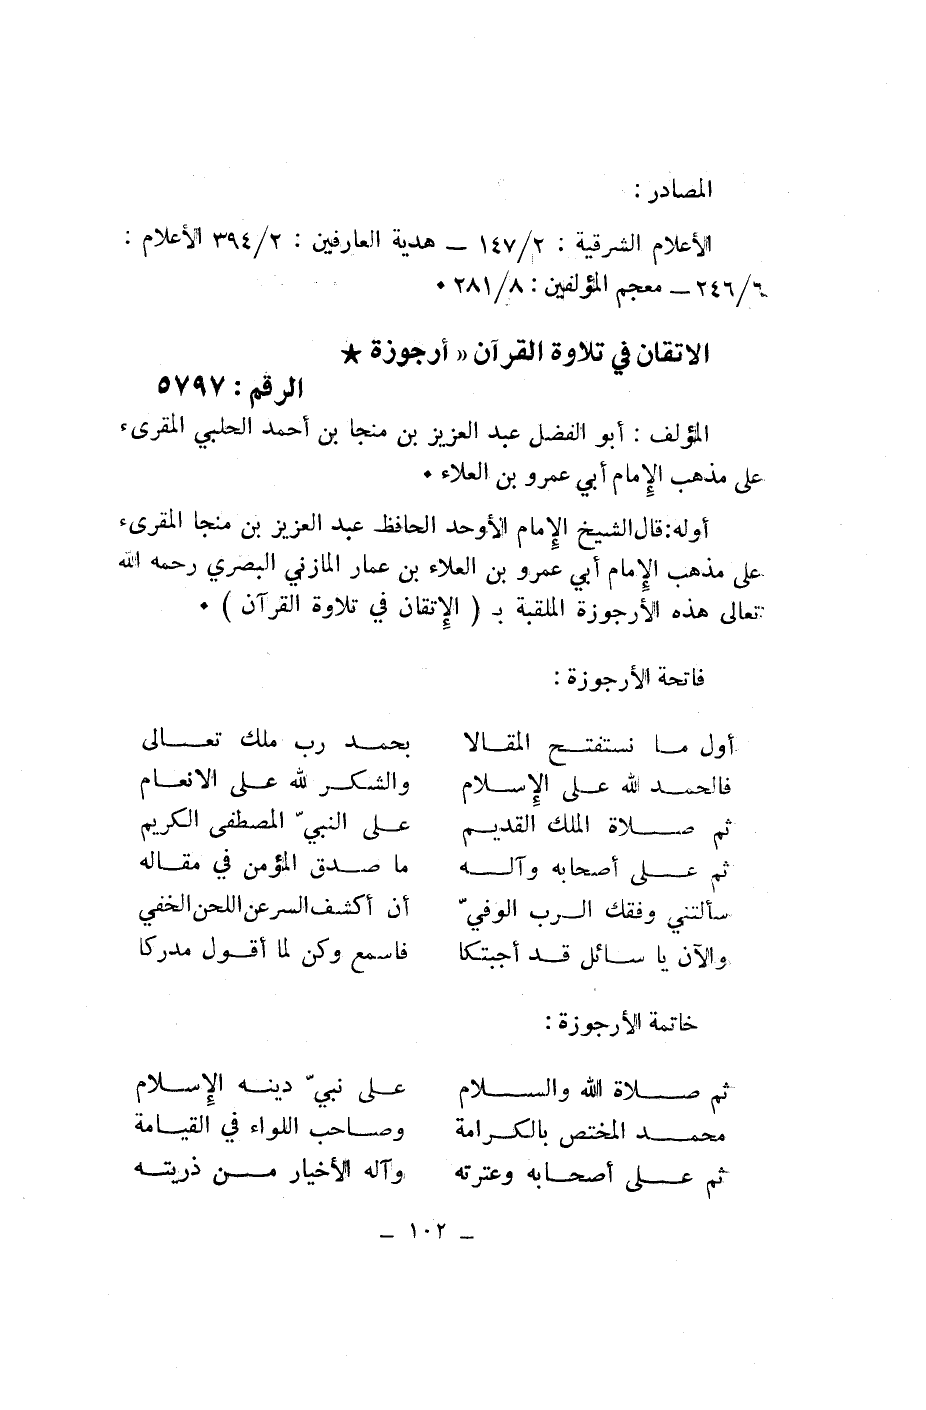 المصادر :
الأعلام الشرقية : ١٤٧/٢ ــ هدية العارفين : ٣٩٤/٢ الأعلام :
٢٤٦/٦ ــ معجم المؤلفين : ٢٨١/٨ ٠
الاتقان في تلاوة القرآن « أرجوزة ★
الرقم : ٥٧٩٧
المؤلف : أبو الفضل عبد العزيز بن منجا بن أحمد الحلبي المقرىء
على مذهب الإمام أبي عمرو بن العلاء ٠
أوله : قال الشيخ الإمام الأوحد الحافظ عبد العزيز بن منجا المقرىء
على مذهب الإمام أبي عمرو بن العلاء بن عمار المازني البصري رحمه الله
تعالى هذه الأرجوزة الملقبة بـ ( الإتقان في تلاوة القرآن ) ٠
فاتحة الأرجوزة :
أول ما نستفتح المقالا بحمد رب ملك تعالى
فالحمد لله على الإسلام والشكر لله على الانعام
ثم صلاة الملك القديم على النبيّ المصطفى الكريم
ثم على أصحابه وآله ما صدق المؤمن في مقاله
سألتني وفقك الرب الوفيّ أن أكشف السر عن اللحن الخفي
والآن يا سائل قد أجبتكا فاسمع وكن لما أقول مدركا
خاتمة الأرجوزة :
ثم صلاة الله والسلام على نبيّ دينه الإسلام
محمد المختص بالكرامة وصاحب اللواء في القيامة
ثم على أصحابه وعترته وآله الأخيار من ذريته
ــ ١٠٢ ــ